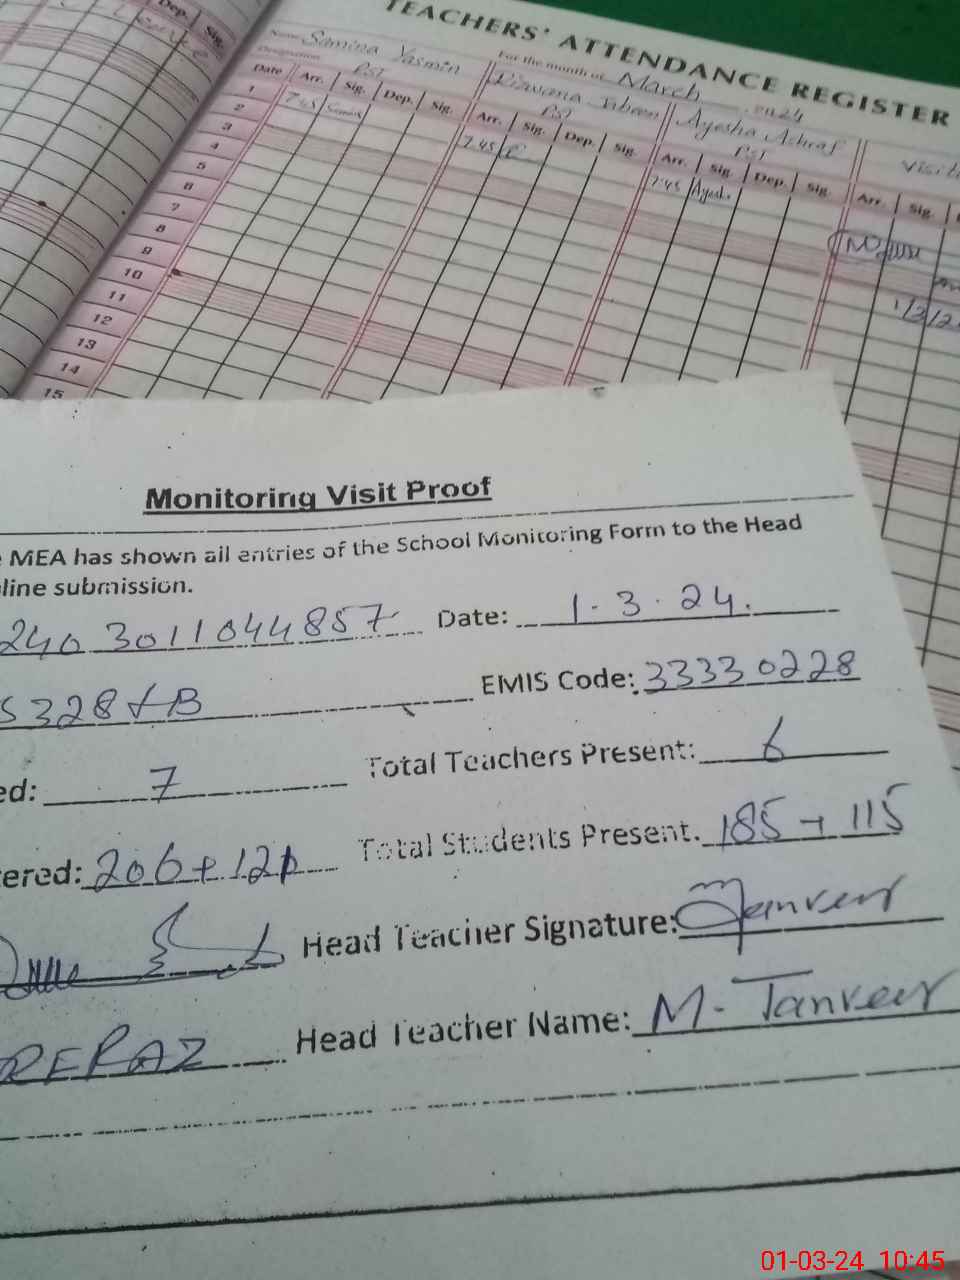 Dep. Sig.
Leave
TEACHERS' ATTENDANCE REGISTER
Name Samina Yasmin For the month of March 2024
Designation PST
Rizwana Jabeen
PST
Ayesha Ashraf
PST
Date Arr. Sig. Dep. Sig. Arr. Sig. Dep. Sig. Arr. Sig. Dep. Sig. Arr. Sig.
1 7.45 7.45 7.45 Ayesh.
2
3
4
5
6
7
8
9
10
11
12
13
14
15
Monitoring Visit Proof
MEA has shown all entries of the School Monitoring Form to the Head
line submission.
240 3011044857 Date: 1.3.24.
S 328 EMIS Code: 33330228
ed: 7 Total Teachers Present: 6
ered: 206+121 Total Students Present. 185+115
Head Teacher Signature: Tanveer
Head Teacher Name: M. Tanveer
01-03-24 10:45